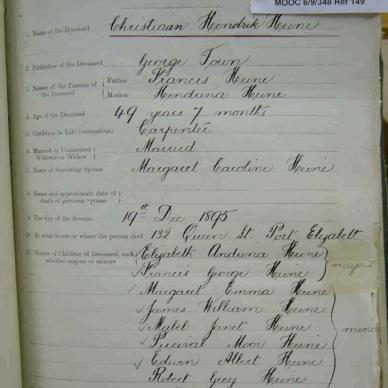 MOOC 6/9/348 Ref 149
1. Name of the Deceased Christiaan Hendrik Heine
2. Birthplace of the Deceased George Town
3. Names of the Parents of the Deceased Father Francis Heine
Mother Hendrina Heine
4. Age of the Deceased 49 years 7 months
5. Condition in Life (occupation) Carpenter
6. Married or Unmarried Widower or Widow Married
7. Name of Surviving Spouse Margaret Caroline Heine
8. Name and approximate date of death of previous spouse
9. The day of the decease 19th Dec 1895
10. At what house or where the person died 132 Queen St Port Elizabeth
11. Names of Children of Deceased, and whether majors or minors Elizabeth Heine
Francis George Heine
majors
Margaret Emma Heine
James William Heine
Mabel Janet Heine
Percival Moor Heine
Edwin Albert Heine
Robert Grey Heine